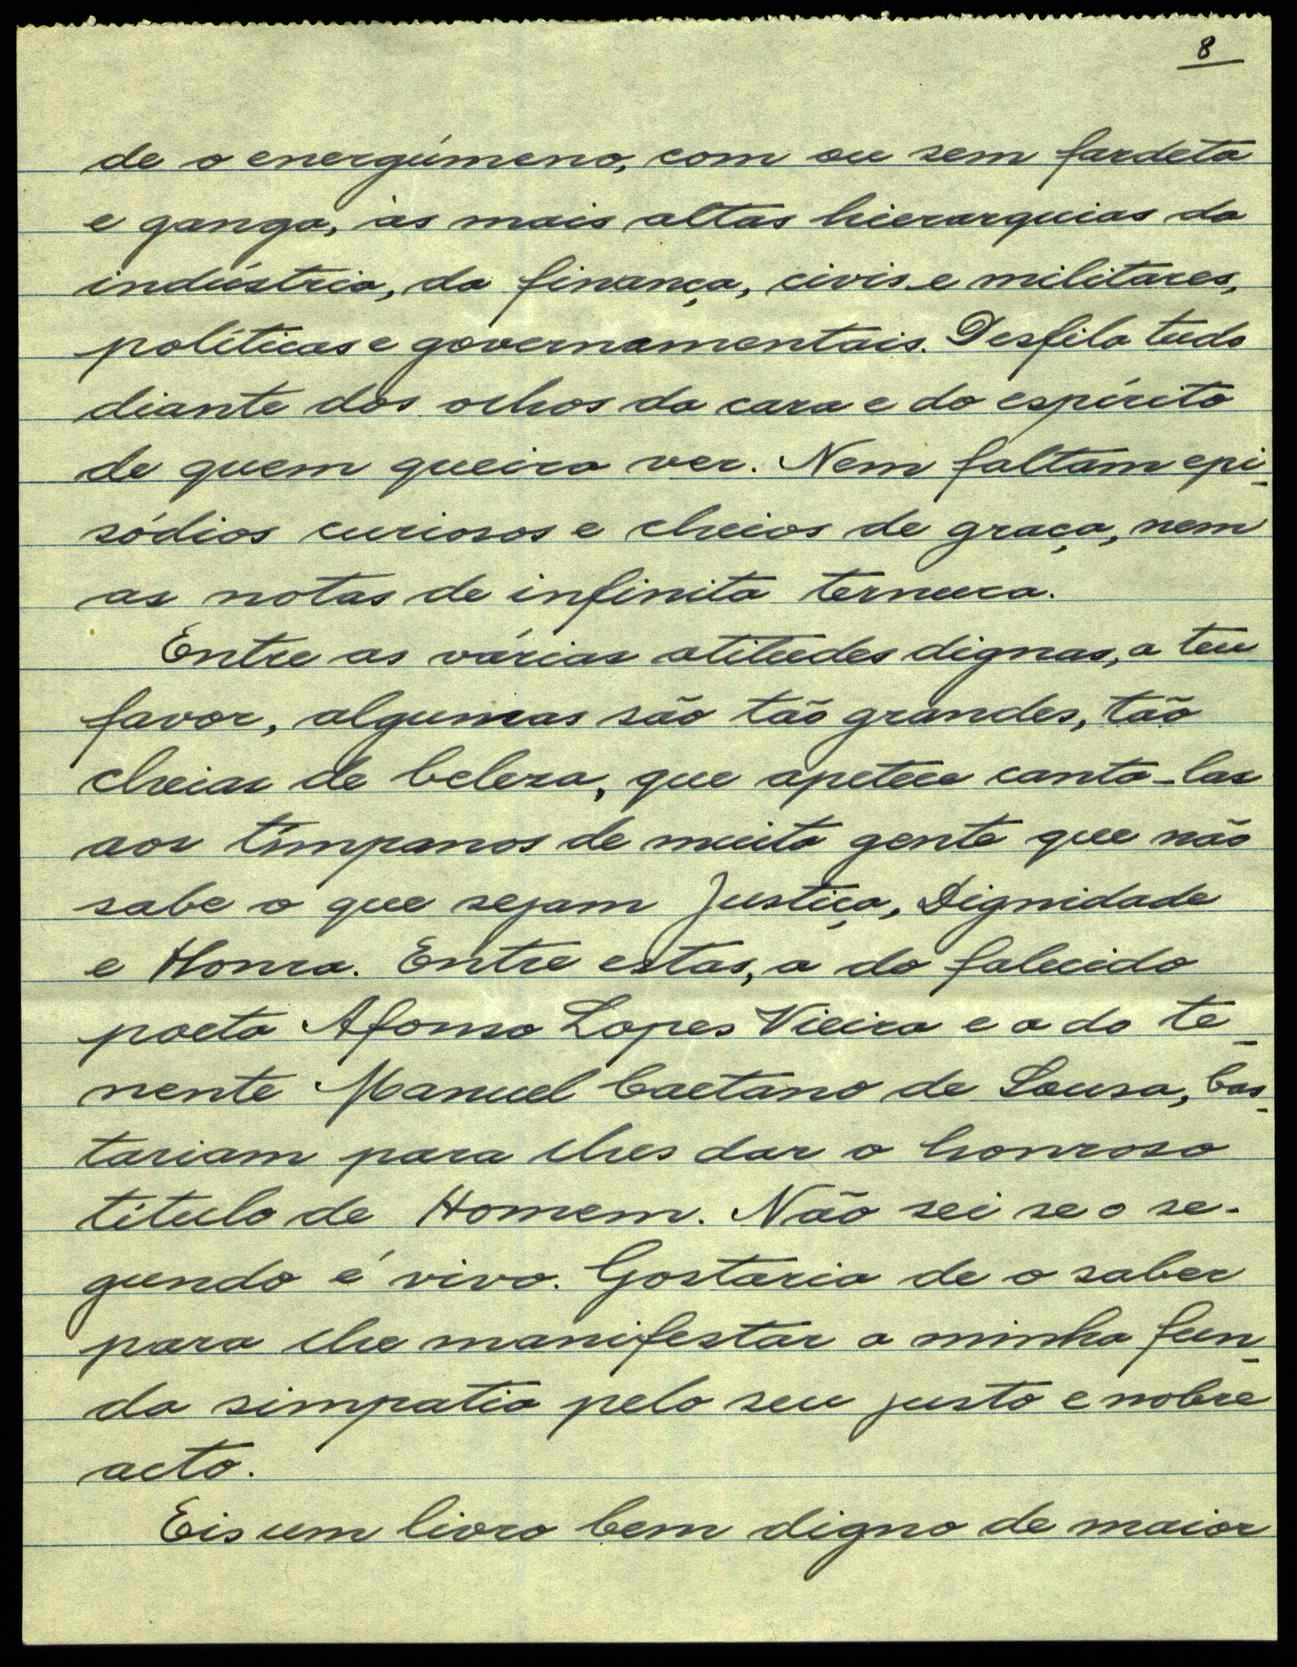 8
de o energúmeno, com ou sem fardeta
e ganga, às mais altas hierarquias da
indústria, da finança, civis e militares,
políticas e governamentais. Desfila tudo
diante dos olhos da cara e do espírito
de quem queira ver. Nem faltam epi-
sódios curiosos e cheios de graça, nem
as notas de infinita ternura.
Entre as várias atitudes dignas, a teu
favor, algumas são tão grandes, tão
cheias de beleza, que apetece canta-las
aos tímpanos de muita gente que não
sabe o que sejam Justiça, Dignidade
e Honra. Entre estas, a do falecido
poeta Afonso Lopes Vieira e a do te-
nente Manuel Caetano de Sousa, bas-
tariam para lhes dar o honroso
título de Homem. Não sei se o se-
gundo é vivo. Gostaria de o saber
para lhe manifestar a minha fun-
da simpatia pelo seu justo e nobre
acto.
Eis um livro bem digno de maior